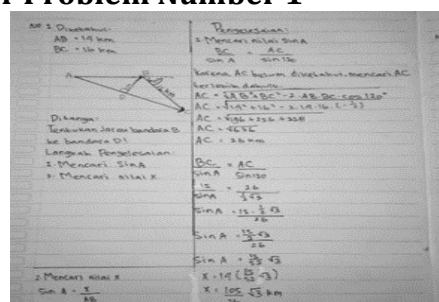 Problem Number 1
No 1 Diketahui:
AB = 14 km
BC = 16 km
A
B
C
Ditanya:
Tentukan Jarak bandara B
ke bandara D!
Langkah Penyelesaian:
1. Mencari Sin A
2. Mencari nilai X
2. Mencari nilai X
Sin A = X
AB
Penyelesaian:
1. Mencari nilai Sin A
BC = AC
Sin A Sin 120
Karena AC belum diketahui, mencari AC
terlebih dahulu:
AC = √AB²+BC²-2.AB.BC.cos 120°
AC = √14²+16²-2.14.16.(-½)
AC = √196+256+224
AC = √676
AC = 26 km
BC = AC
Sin A Sin 120
15 = 26
Sin A ½√3
Sin A = 15.½√3
26
Sin A = 15/2 √3
26
Sin A = 15/52 √3
X = 14 (15/52 √3)
X = 105 √3 km